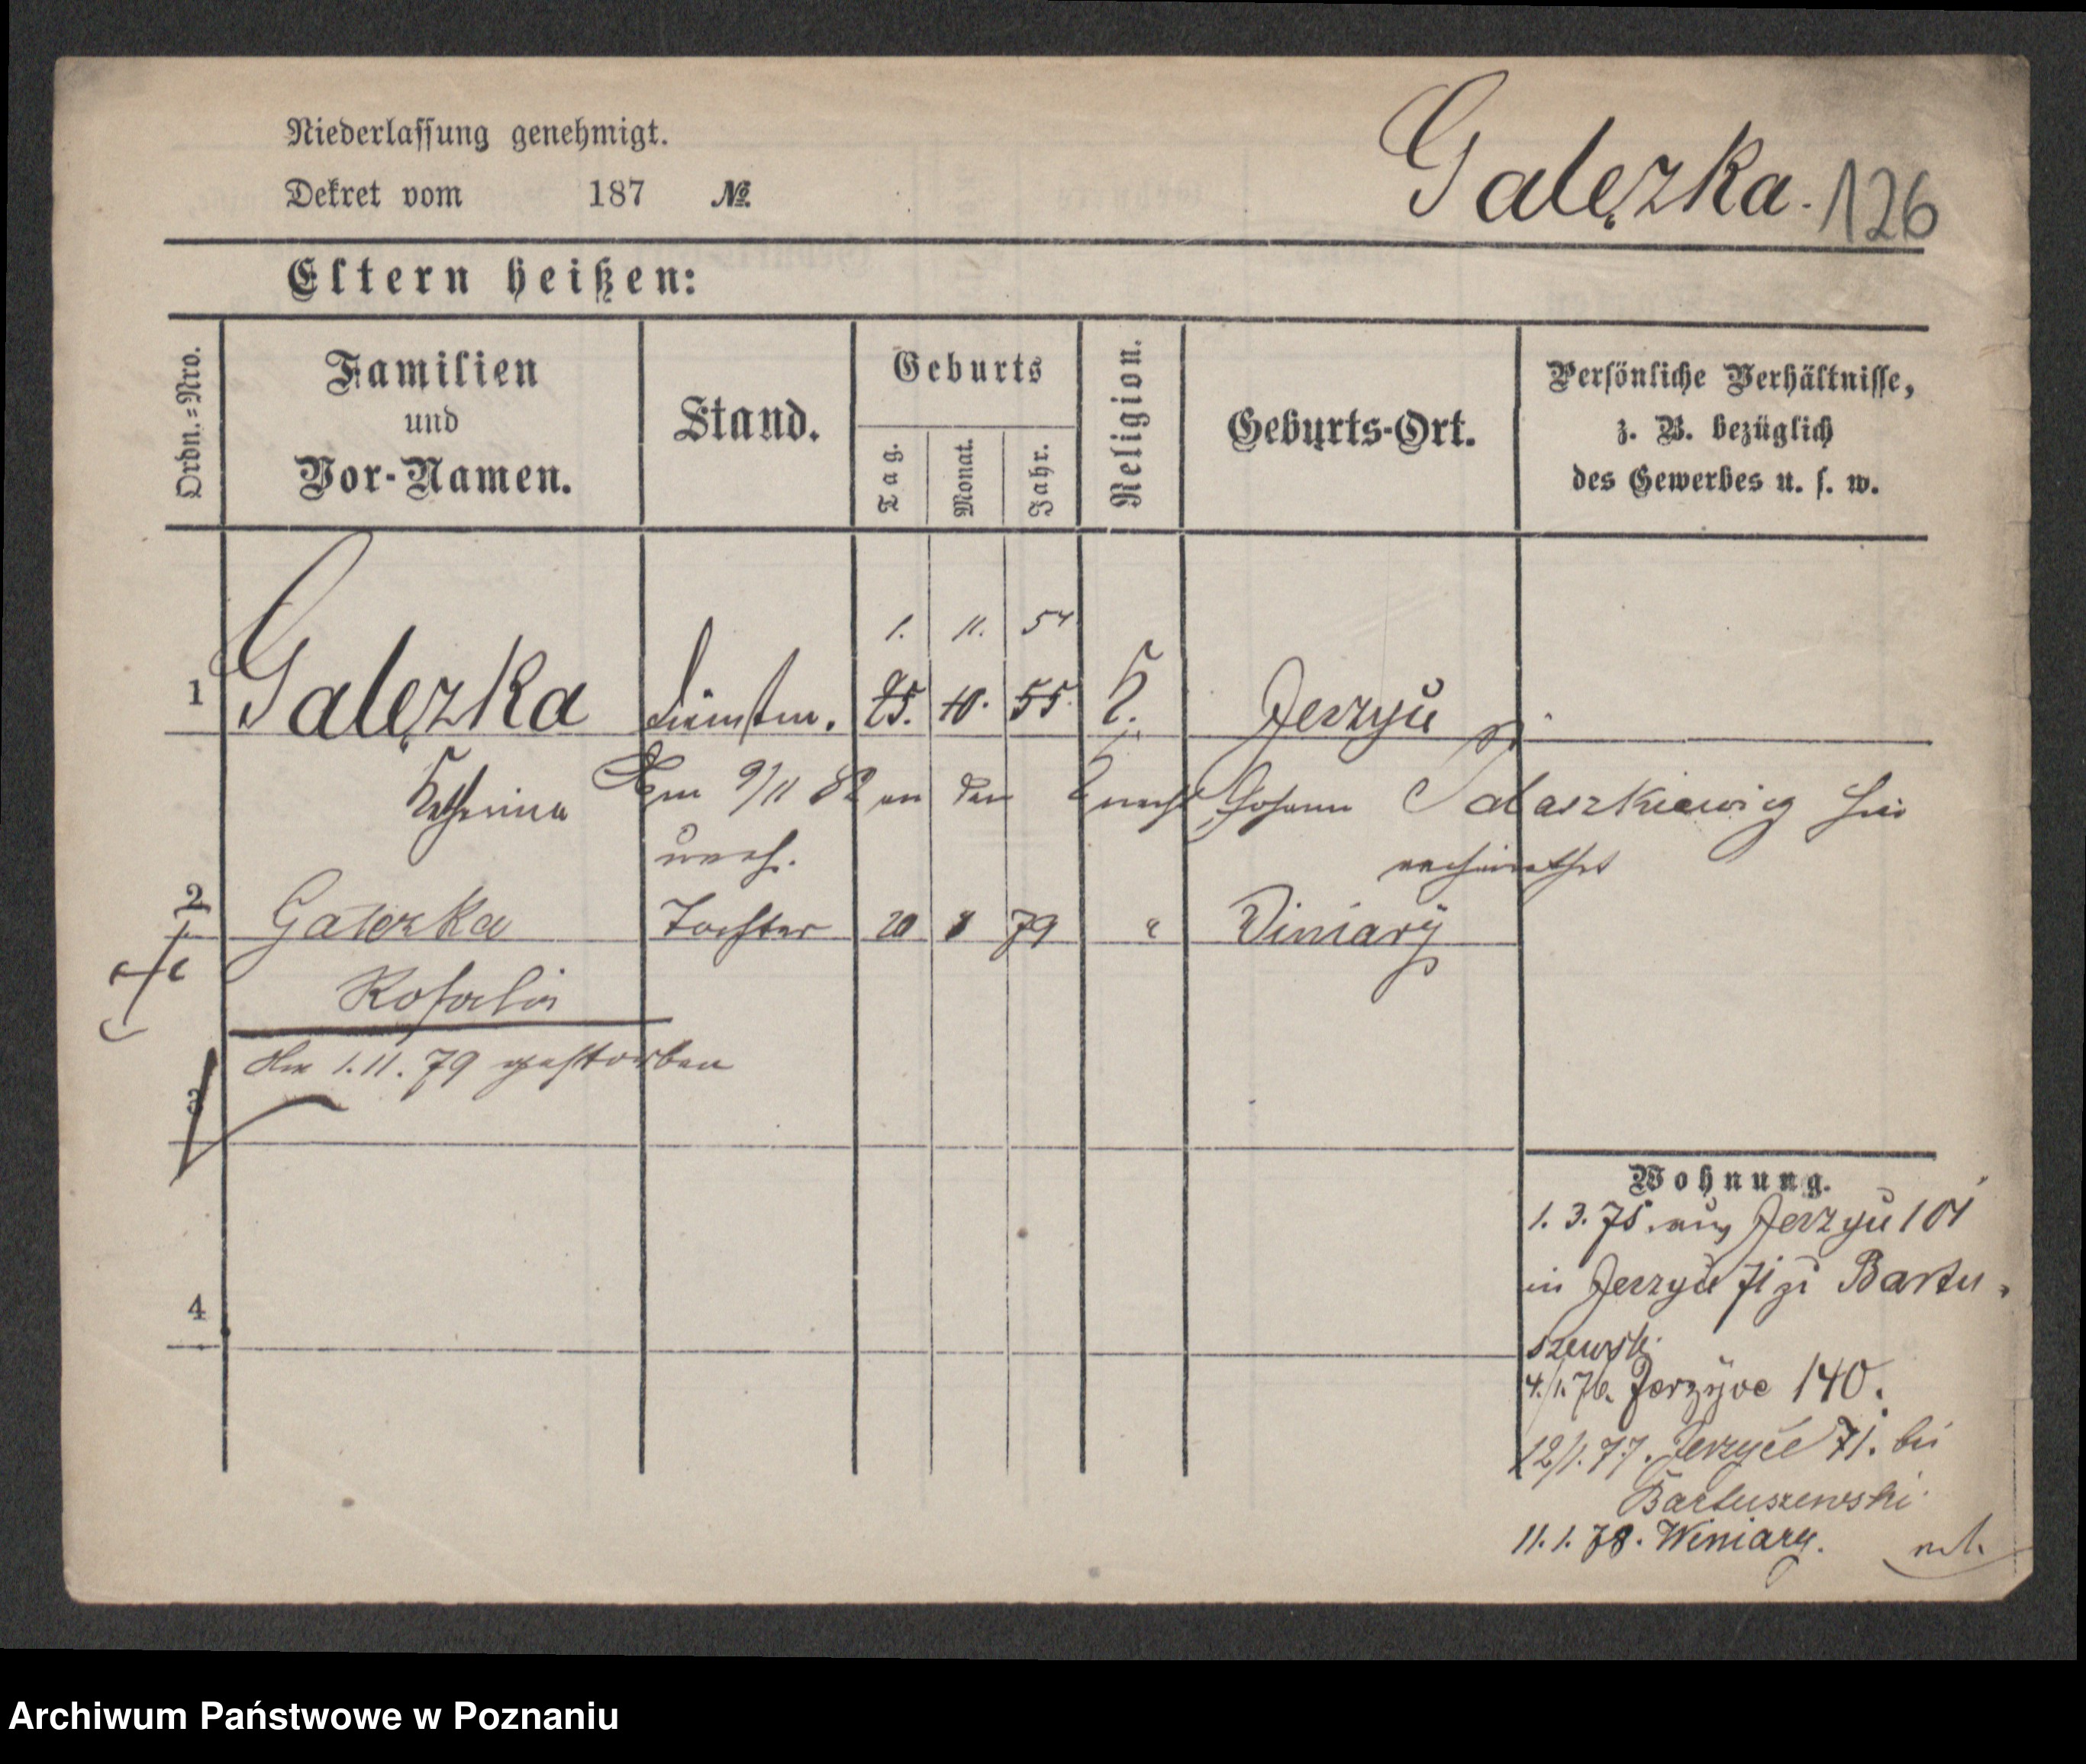 Niederlassung genehmigt.
Dekret vom 187 №
Galęzka. 126
Eltern heißen:
Ordn.=Nro.
Familien und Vor-Namen.
Stand.
Geburts
Tag.
Monat.
Jahr.
Religion.
Geburts-Ort.
Persönliche Verhältnisse,
z. B. bezüglich
des Gewerbes u. s. w.
1. 11. 54
1 Galęzka 25. 10. 55. K. Jerzyce
Katharina Am 9/11 82 an den Knecht Johann hier
uneh. verheirathet
2 Galęzka Tochter 20 8 79 " Winiary
Rosalia
Am 1.11.79 gestorben
3
Wohnung.
1. 3. 75. aus Jerzyce 101
in Jerzyce 71 Bartu-
szewski.
4./1.76. Jerzyce 140.
4
12/1.77. Jerzyce 71. bei
Bartuszewski.
11. 1. 78. Winiary.
Archiwum Państwowe w Poznaniu